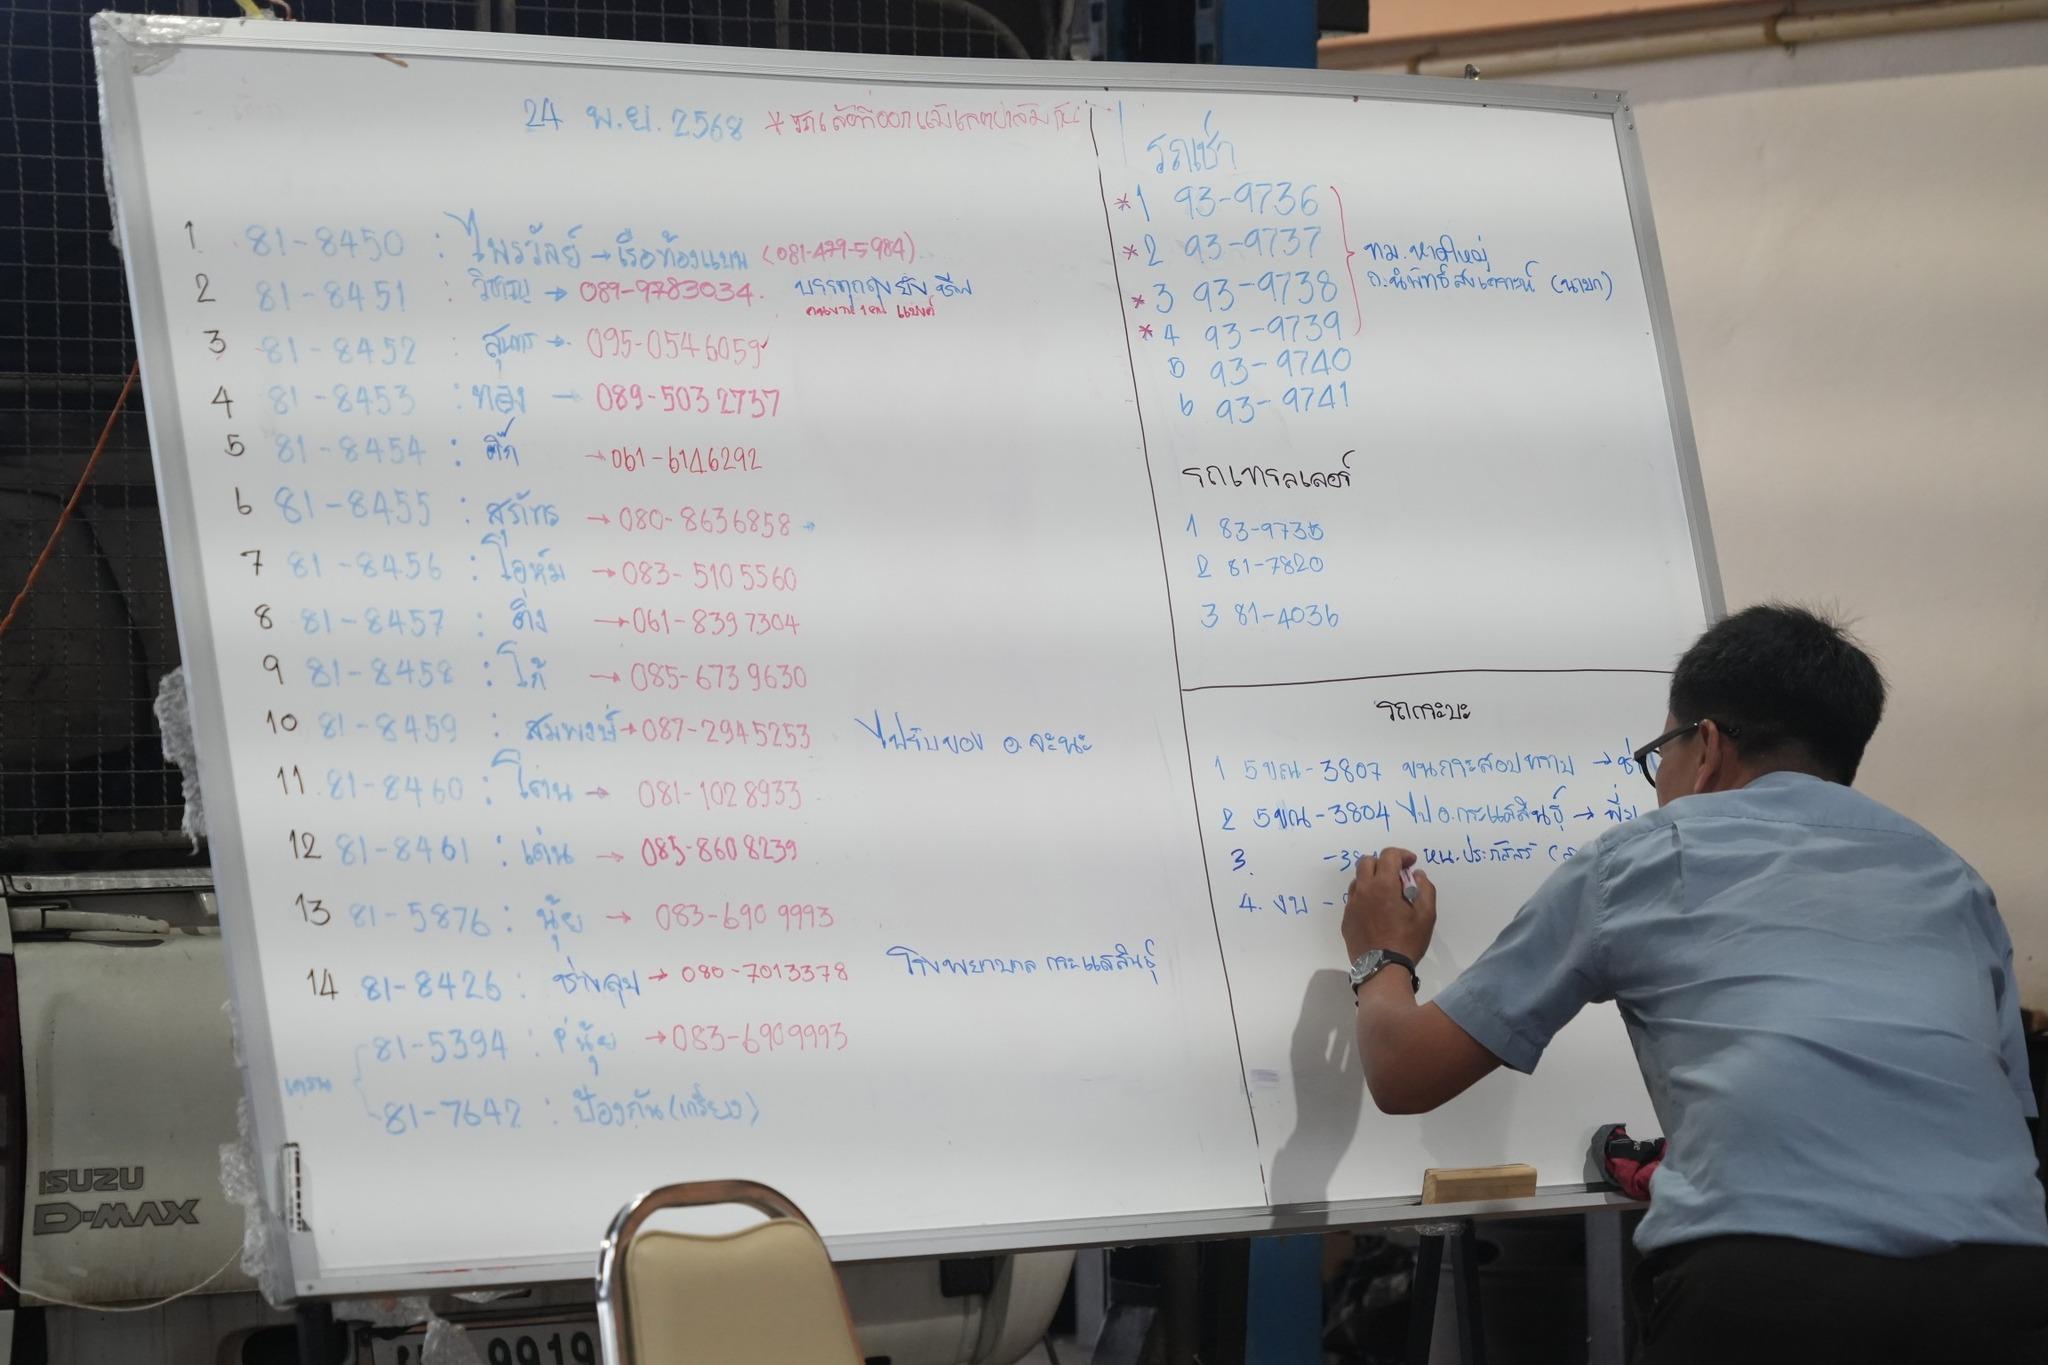 24 พ.ย. 2568
1 81-8450 : ไพรวัลย์ → เรือท้องแบน (081-479-5984)
2 81-8451 : วิชาญ → 089-9783034. บรรทุกถุงยังชีพ
3 81-8452 : → 095-0546059
4 81-8453 : ทอง → 089-5032737
5 81-8454 : ติ๊ก → 061-6146292
6 81-8455 : สุภัทร → 080-8636858
7 81-8456 : → 083-5105560
8 81-8457 : ติ่ง → 061-8397304
9 81-8458 : โก้ → 085-6739630
10 81-8459 : สมพงษ์ → 087-2945253 ไปรับของ อ.จะนะ
11 81-8460 : → 081-1028933
12 81-8461 : เด่น → 085-8608239
13 81-5876 : นุ้ย → 083-6909993
14 81-8426 : → 080-7013378 โรงพยาบาลกระแสสินธุ์
เครน
81-5394 : พี่นุ้ย → 083-6909993
81-7642 : ป้องกัน (เกรียง)
รถเช่า
*1 93-9736
*2 93-9737
*3 93-9738
*4 93-9739
ทม.หาดใหญ่
ถ.นิพัทธ์สงเคราะห์ (นายก)
5 93-9740
6 93-9741
รถเทรลเลอร์
1 83-9735
2 81-7820
3 81-4036
รถกระบะ
1 5ขณ-3807 ขนกระสอบทราย →
2 5ขณ-3804 ไป อ.กระแสสินธุ์ →
3. หน.ประภัสสร์
4. งบ -
ISUZU
D-MAX
9919